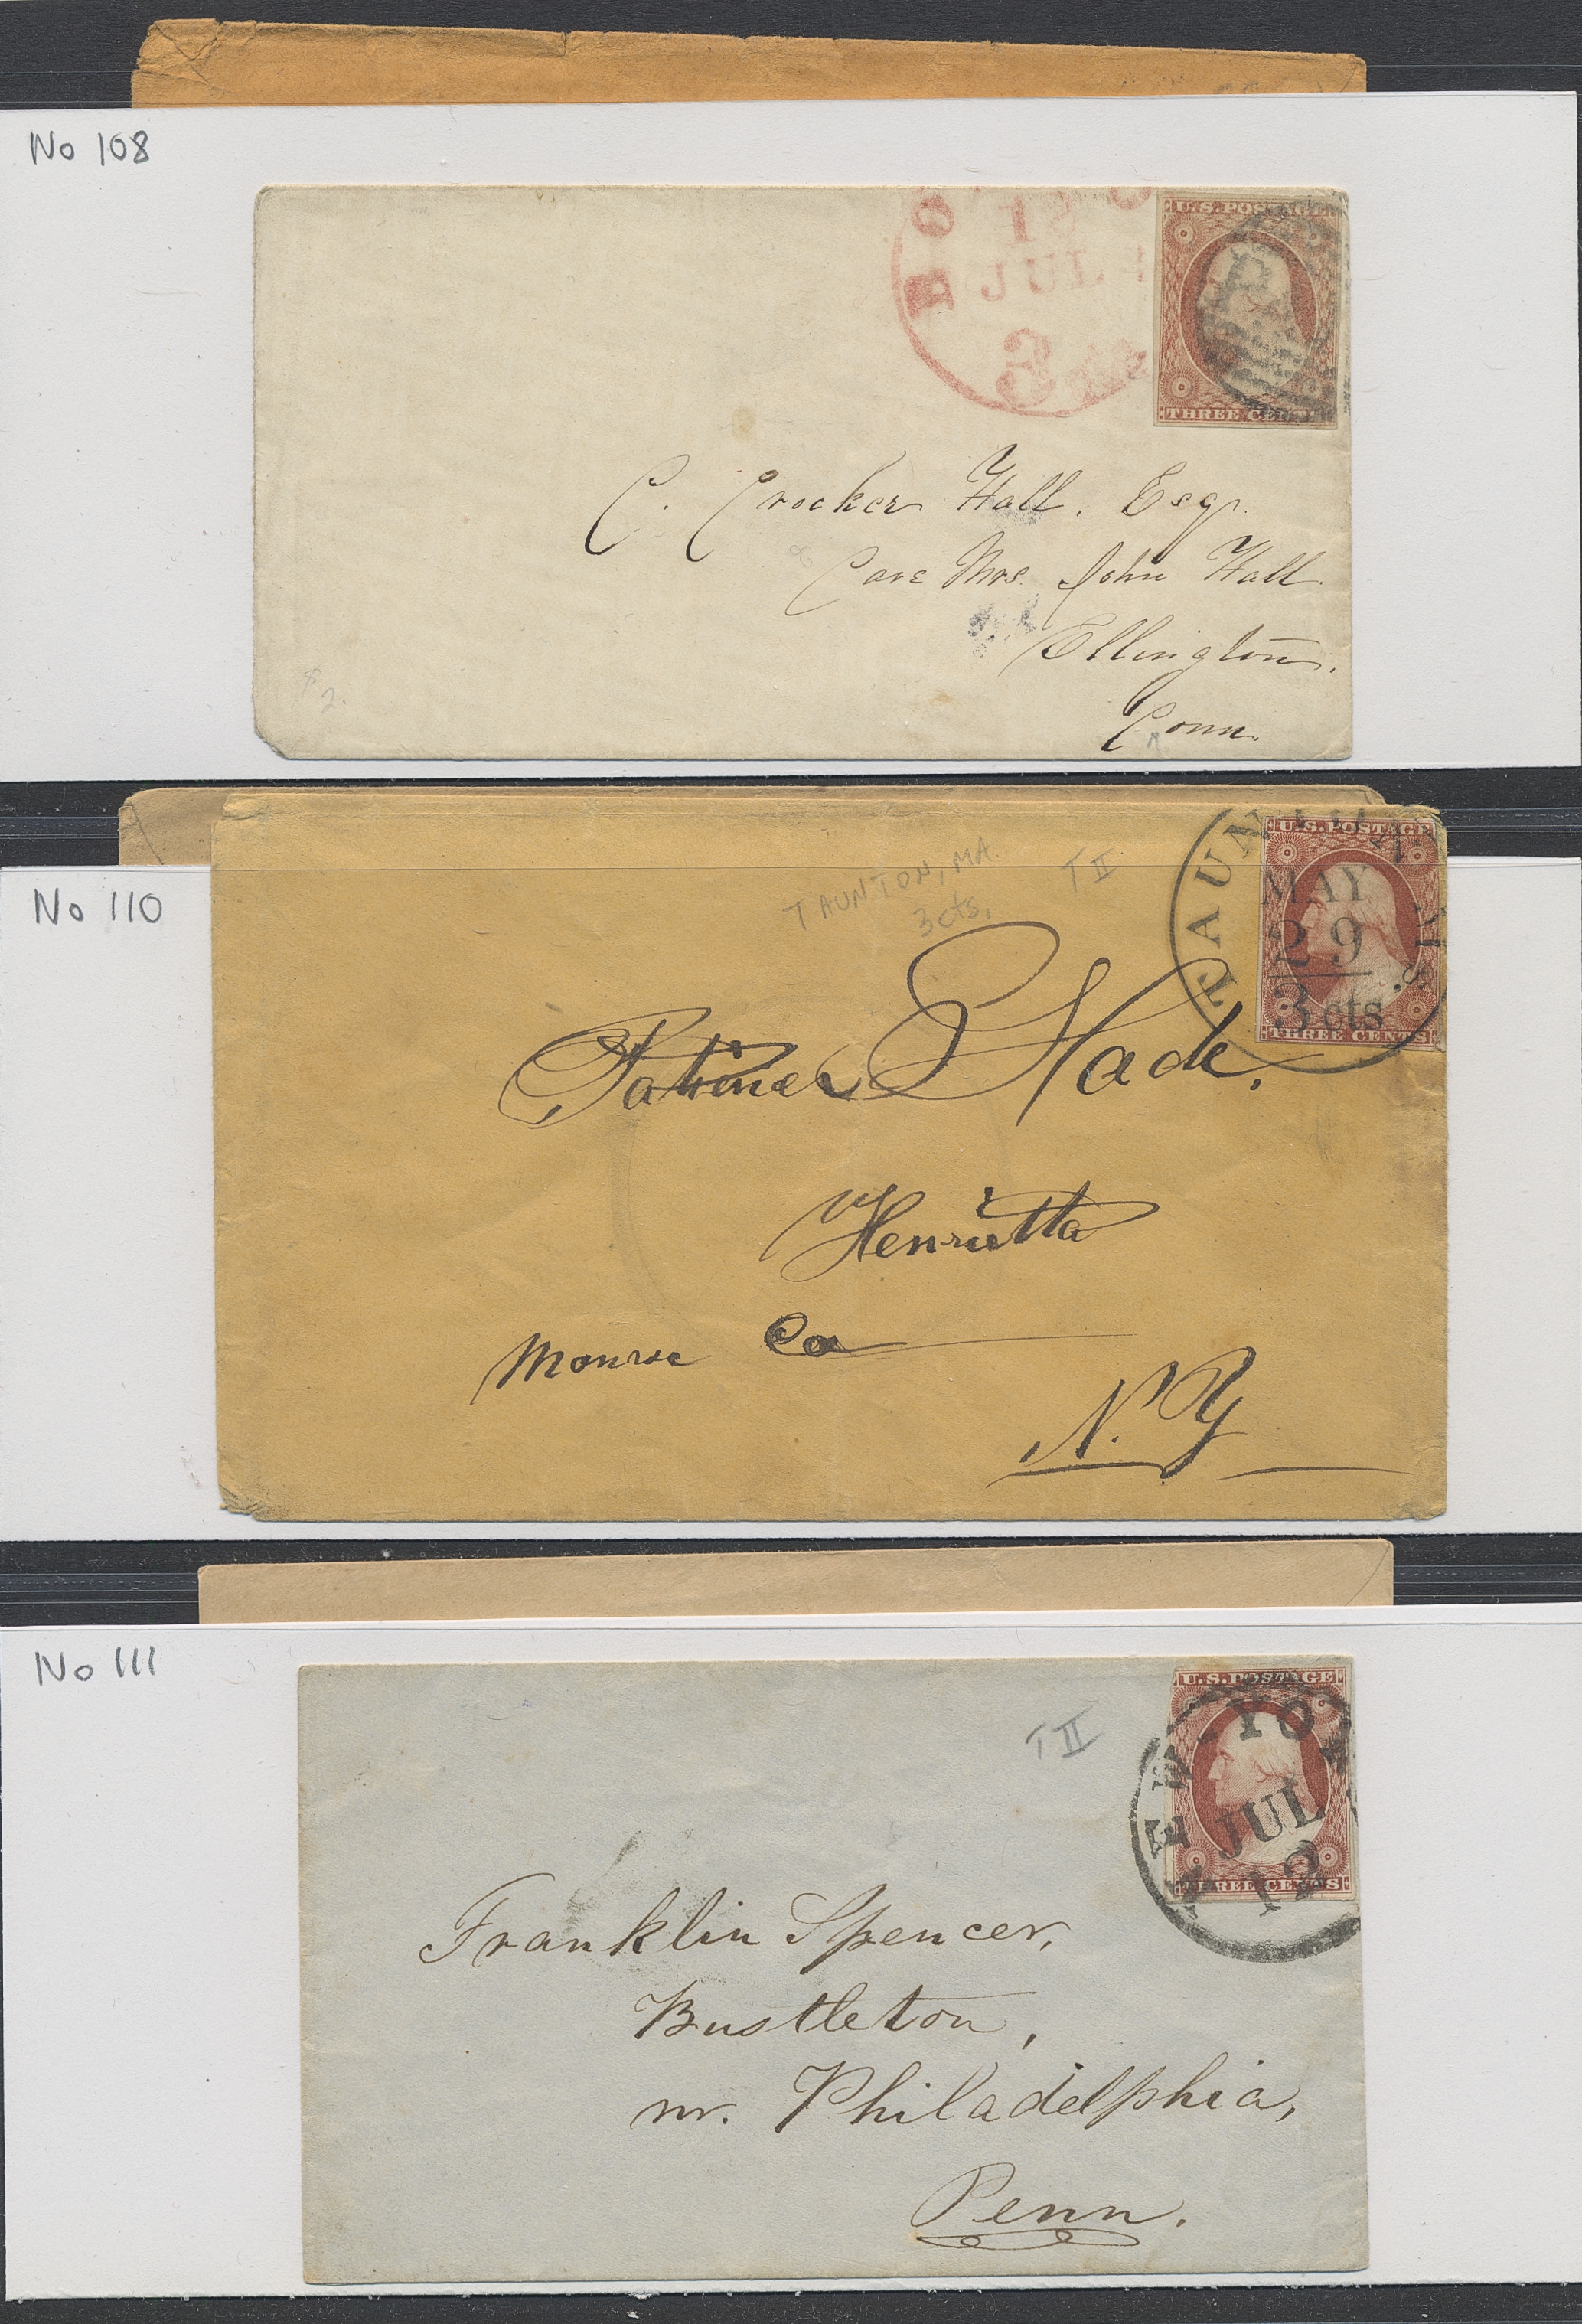 No 108
BO
15
JUL
3 cts
U.S. POSTAGE
THREE CENTS
C. Crocker Hall. Esqr.
Care Mrs. John Hall.
Ellington.
Conn.
No 110
TAUNTON, MA
3 cts.
T II
TAUNTON MASS.
MAY
29
3 cts
U.S. POSTAGE
THREE CENTS
Slade.
Henrietta
Monroe Co
N.Y
No 111
T II
U.S. POSTAGE
THREE CENTS
NEW-YORK
JUL
12
Franklin Spencer,
Bustleton,
nr. Philadelphia,
Penn.